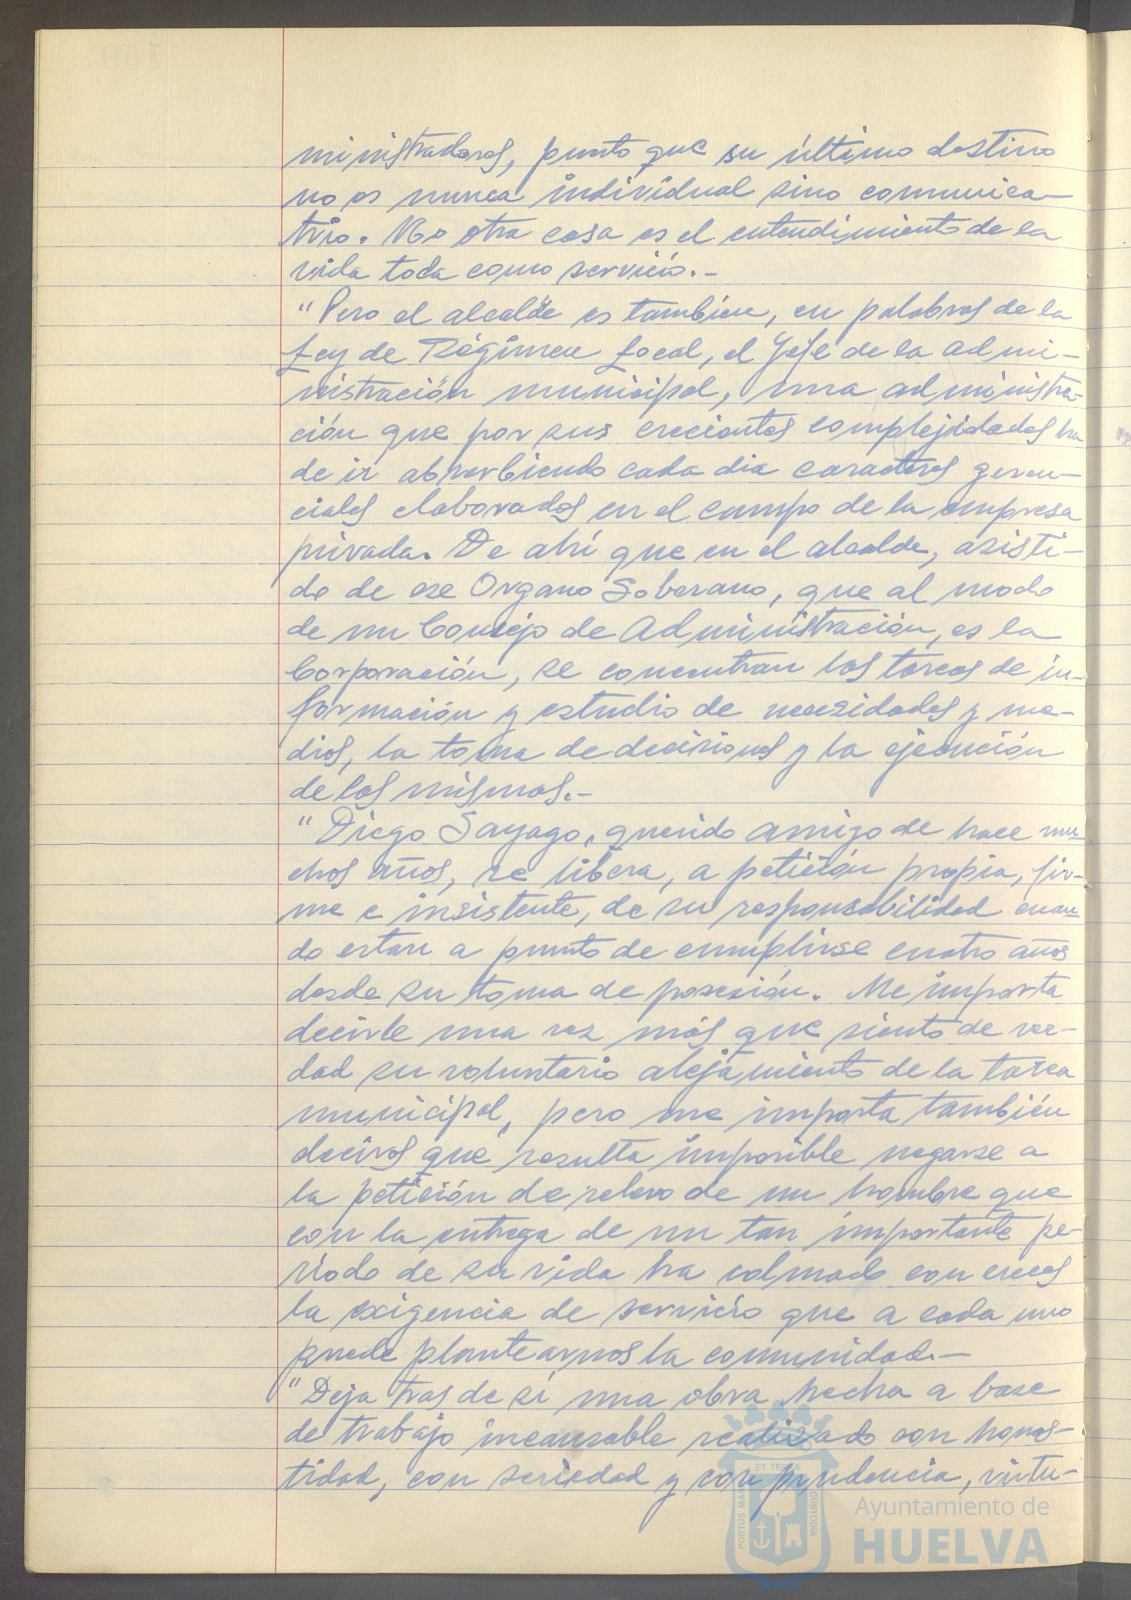 ministradores, puesto que su último destino
no es nunca individual sino comunica-
trio. No otra cosa es el entendimiento de la
vida toda como servicio.-
"Pero el alcalde es tambien, en palabras de la
Ley de Régimen Local, el Jefe de la admi-
nistración municipal, una administra-
ción que por sus crecientes complejidades ha
de ir absorbiendo cada dia caracteres geren-
ciales elaborados en el campo de la empresa
privada. De ahí que en el alcalde, asisti-
do de ese Organo Soberano, que al modo
de un Consejo de Administración, es la
Corporación, se concentran las tareas de in-
formación y estudio de necesidades y me-
dios, la toma de decisiones y la ejecución
de las mismas.-
"Diego Sayago, querido amigo de hace mu-
chos años, se libera, a petición propia, fir-
me e insistente, de su responsabilidad cuan-
do estan a punto de cumplirse cuatro años
desde su toma de posesión. Me importa
decirle una vez más que siento de ver-
dad su voluntario alejamiento de la tarea
municipal, pero me importa también
deciros que resulta imposible negarse a
la petición de relevo de un hombre que
con la entrega de un tan importante pe-
riodo de su vida ha colmado con creces
la exigencia de servicio que a cada uno
puede plantearnos la comunidad.-
"Deja tras de sí una obra hecha a base
de trabajo incansable realizado con hones-
tidad, con seriedad y con prudencia, virtu-
PORTUS MARIS ET TERRAE CUSTODIA
Ayuntamiento de
HUELVA